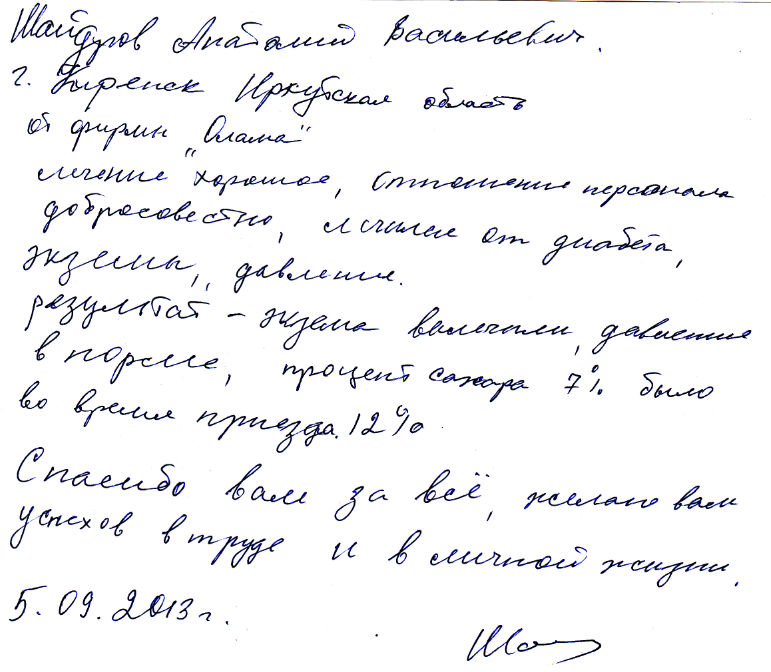 Шайдуров Анатолий Васильевич.
г. Киренск Иркутская область
от фирмы „Олама"
лечение хорошое, отношение персонала
добросовестно, лечился от диабета,
экземы, давления.
результат – экзема вылечили, давление
в норме, процент сахара 7% было
во время приезда. 12%
Спасибо вам за всё, желаю вам
успехов в труде и в личной жизни.
5. 09. 2013 г.